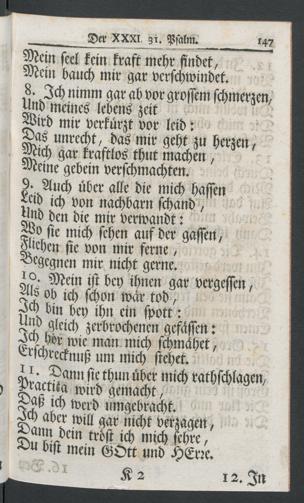 Der XXXI. 31. Psalm. 147
Mein seel kein kraft mehr findet,
Mein bauch mir gar verschwindet.
8. Ich nimm gar ab vor grossem schmerzen,
Und meines lebens zeit
Wird mir verkürzt vor leid:
Das unrecht, das mir geht zu herzen,
Mich gar kraftlos thut machen,
Meine gebein verschmachten.
9. Auch über alle die mich hassen
Leid ich von nachbarn schand,
Und den die mir verwandt:
Wo sie mich sehen auf der gassen,
Fliehen sie von mir ferne,
Begegnen mir nicht gerne.
10. Mein ist bey ihnen gar vergessen,
Als ob ich schon wär tod,
Ich bin bey ihn ein spott:
Und gleich zerbrochenen gefässen:
Ich hör wie man mich schmähet,
Erschrecknuß um mich stehet.
11. Dann sie thun über mich rathschlagen,
Practika wird gemacht,
Daß ich werd umgebracht.
Ich aber will gar nicht verzagen,
Dann dein tröst ich mich sehre,
Du bist mein GOtt und HErre.
K 2 12. In